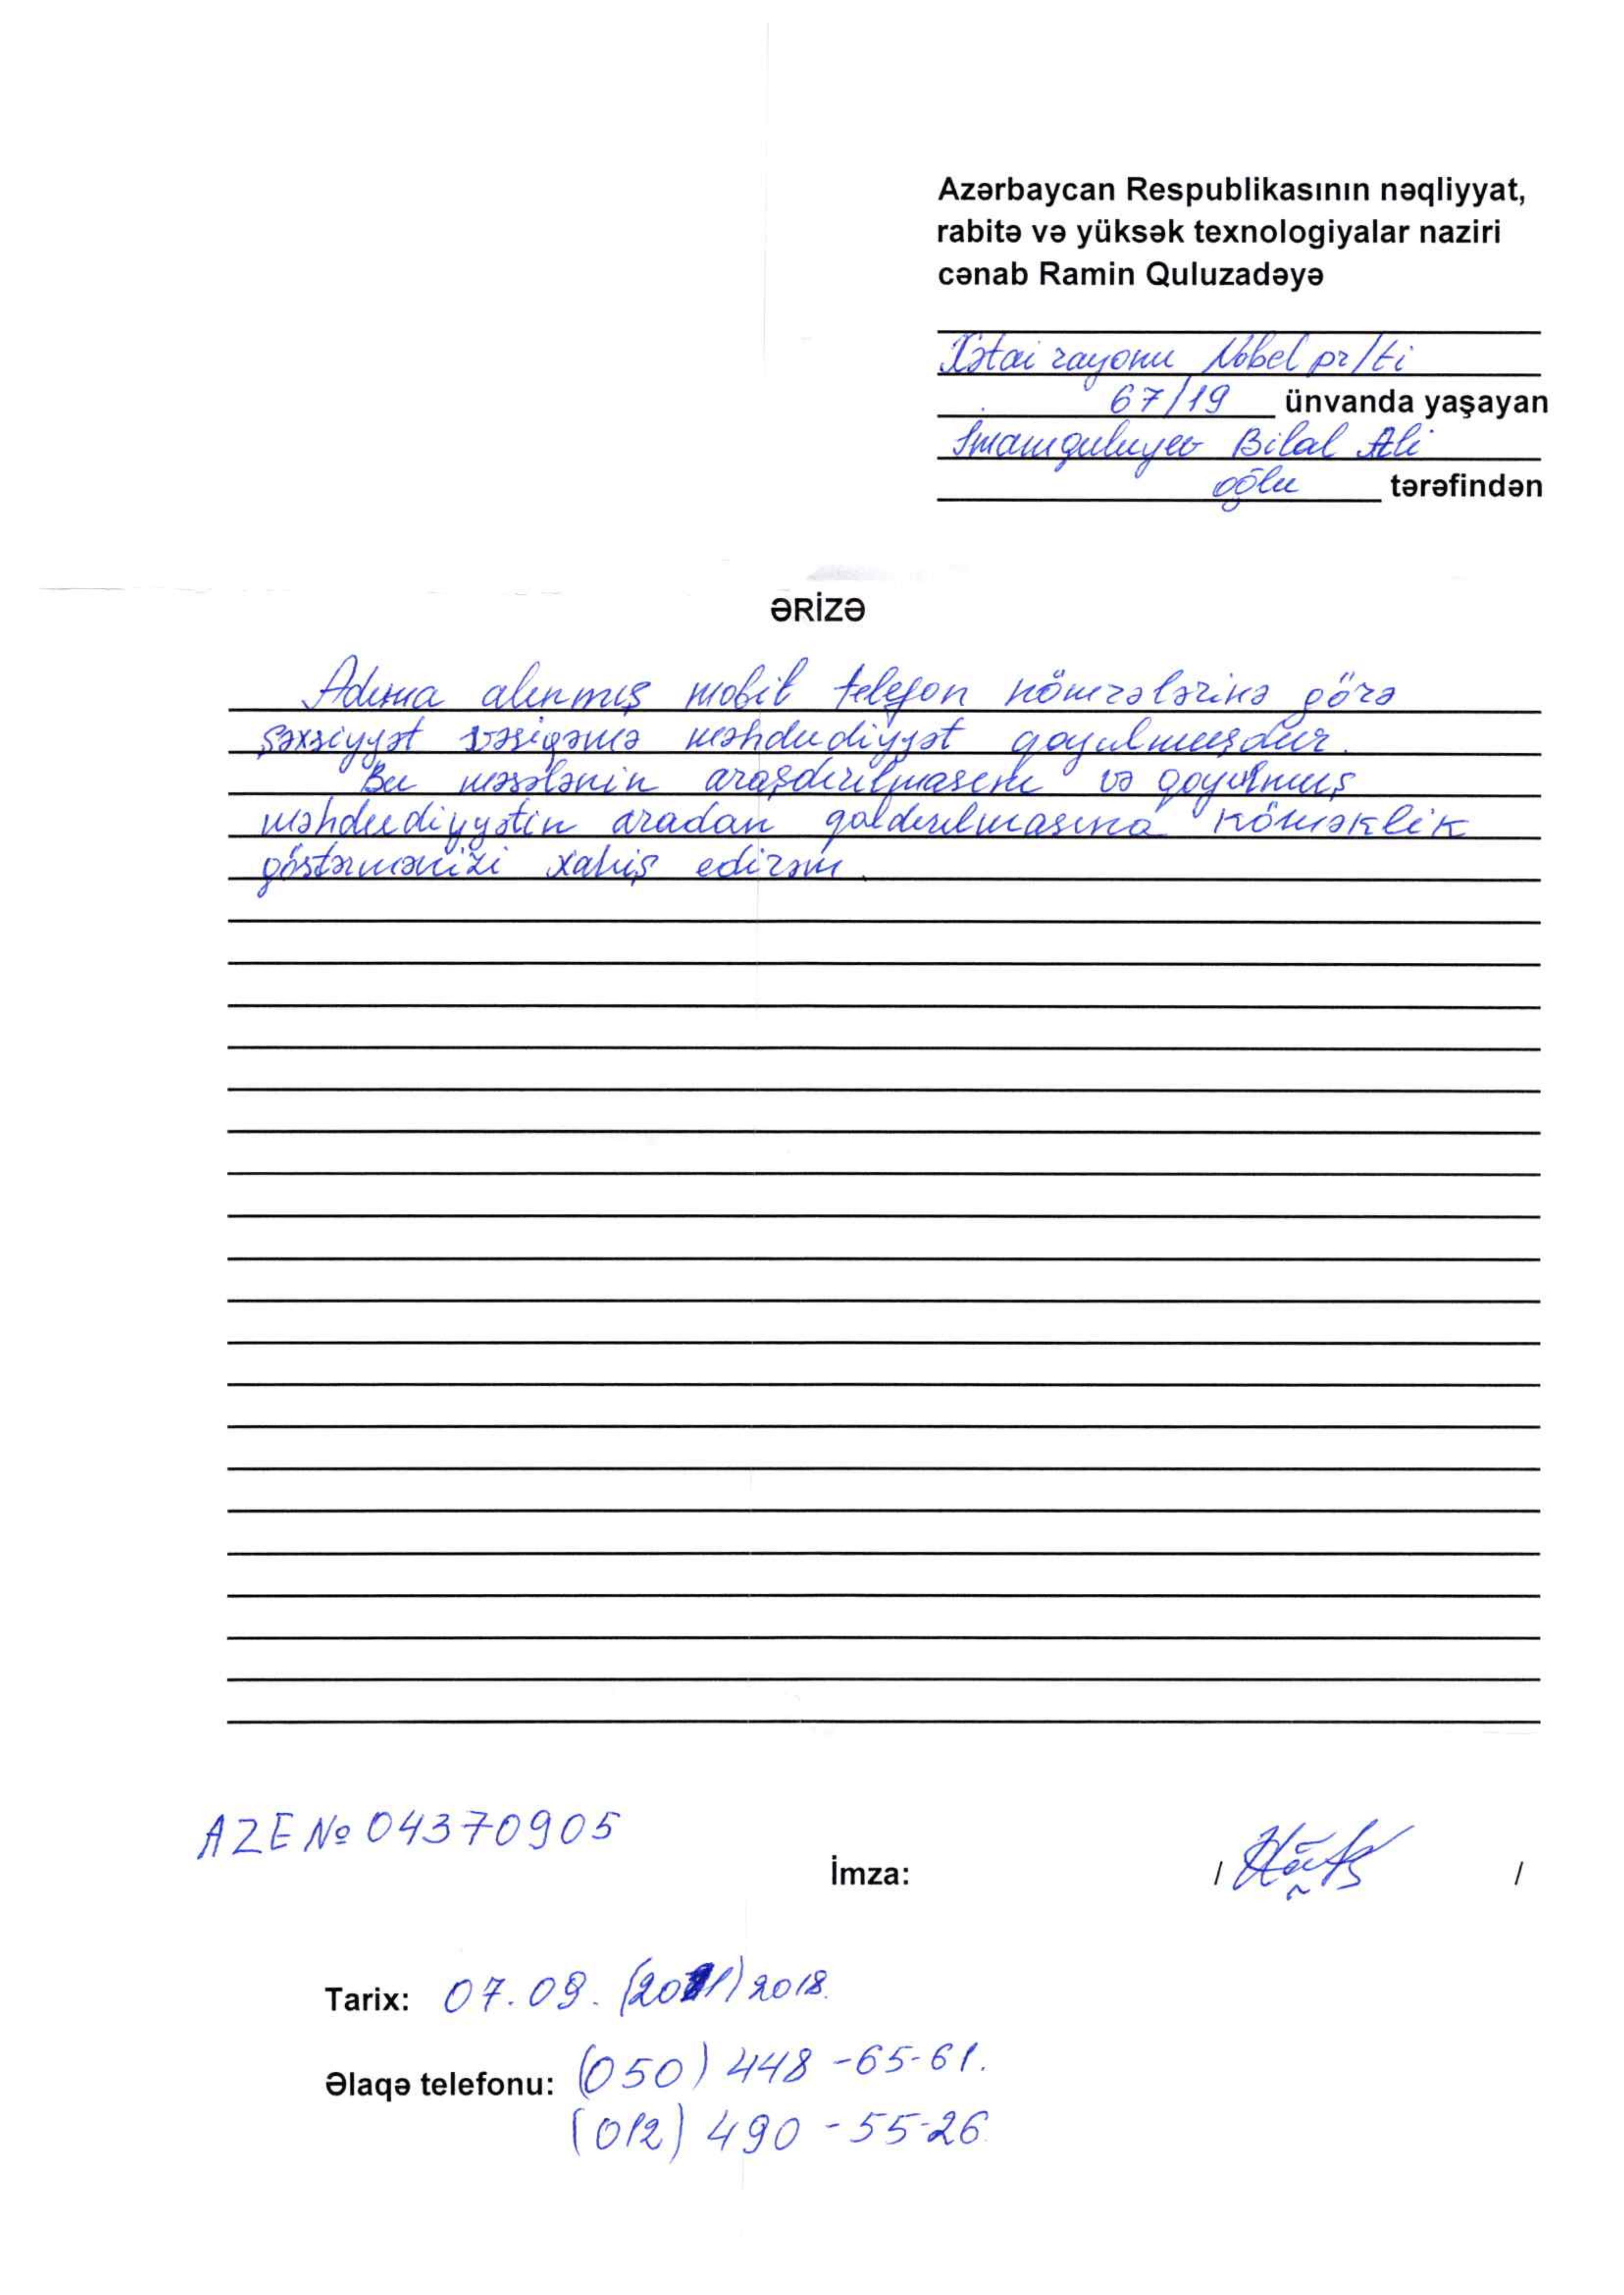 Azərbaycan Respublikasının nəqliyyat,
rabitə və yüksək texnologiyalar naziri
cənab Ramin Quluzadəyə
Xətai rayonu Nobel pr/ti
67/19 ünvanda yaşayan
İmamquluyev Bilal Ali
oğlu tərəfindən
ƏRİZƏ
Adıma alınmış mobil telefon nömrələrinə görə
şəxsiyyət vəsiqəmə məhdudiyyət qoyulmuşdur.
Bu məsələnin araşdırılmasını və qoyulmuş
məhdudiyyətin aradan qaldırılmasına köməklik
göstərmənizi xahiş edirəm.
AZE № 04370905
İmza: / /
Tarix: 07.09. 2018.
Əlaqə telefonu: (050) 448-65-61.
(012) 490-55-26